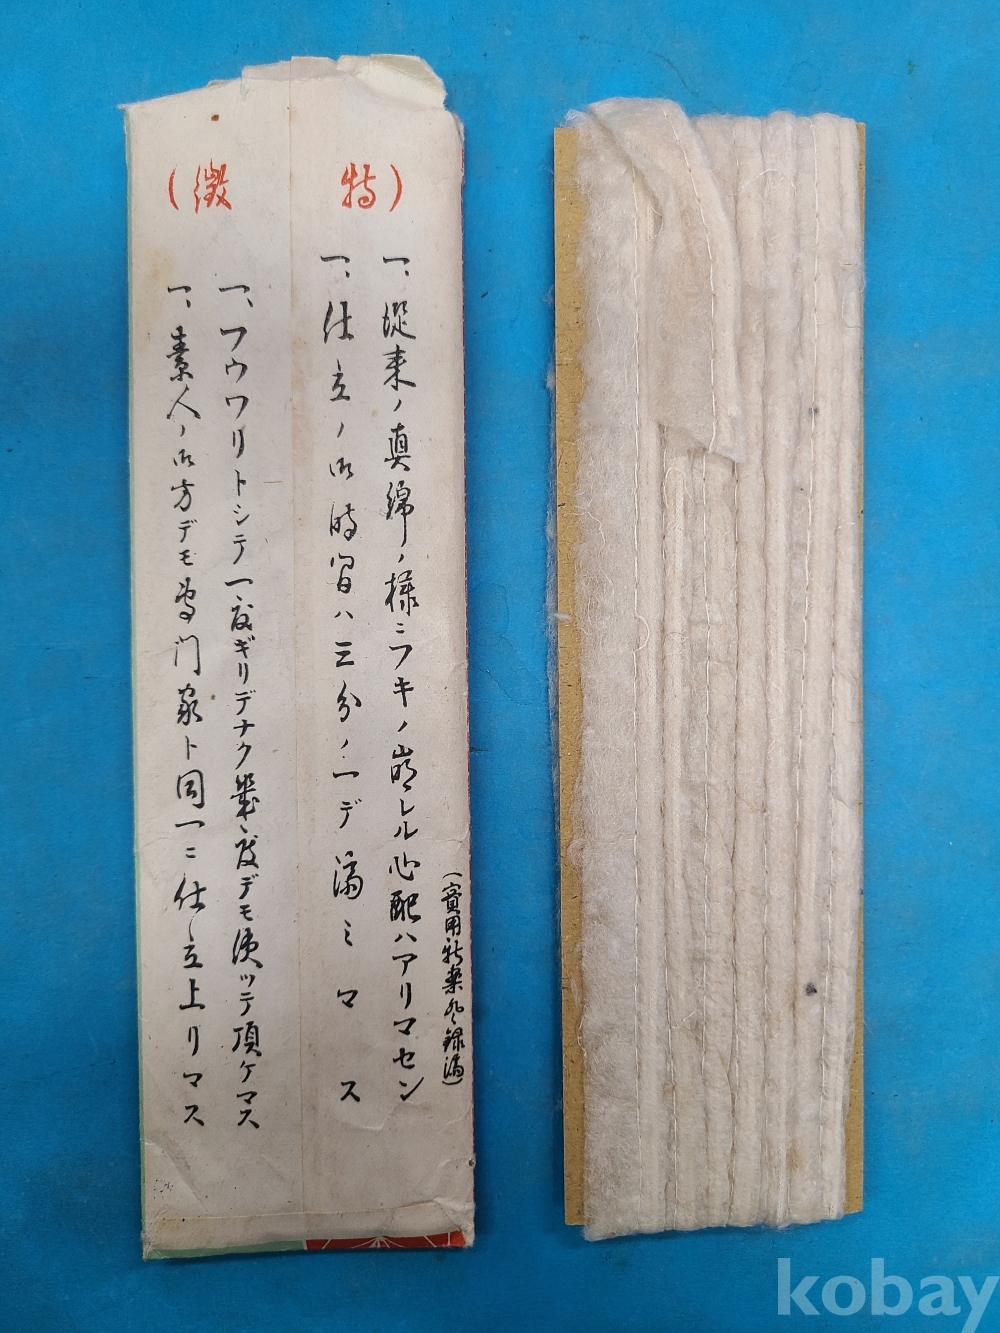 (特徴)
一、從来ノ真綿ノ様ニフキノ崩レル心配ハアリマセン
(實用新案登録済)
一、仕立ノ御時間ハ三分ノ一デ済ミマス
一、フウワリトシテ一度ギリデナク幾度デモ使ッテ頂ケマス
一、素人ノ御方デモ専門家ト同一ニ仕立上リマス
kobay